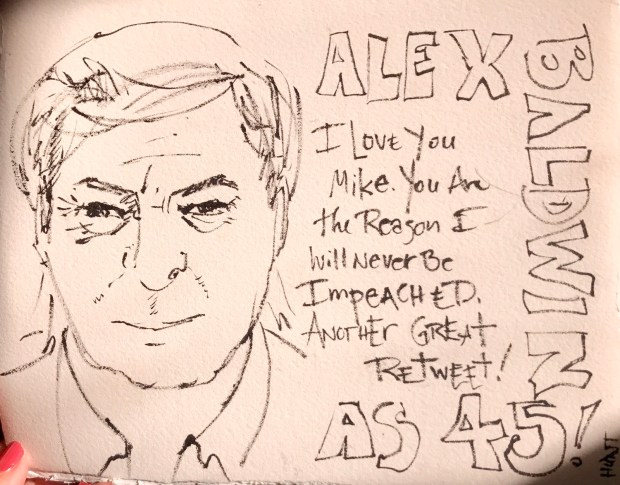 ALEX
BALDWIN
I Love You
Mike. You Are
the Reason I
Will Never Be
IMPEACHED.
ANOTHER GREAT
RETWEET!
AS 45!
HUNT